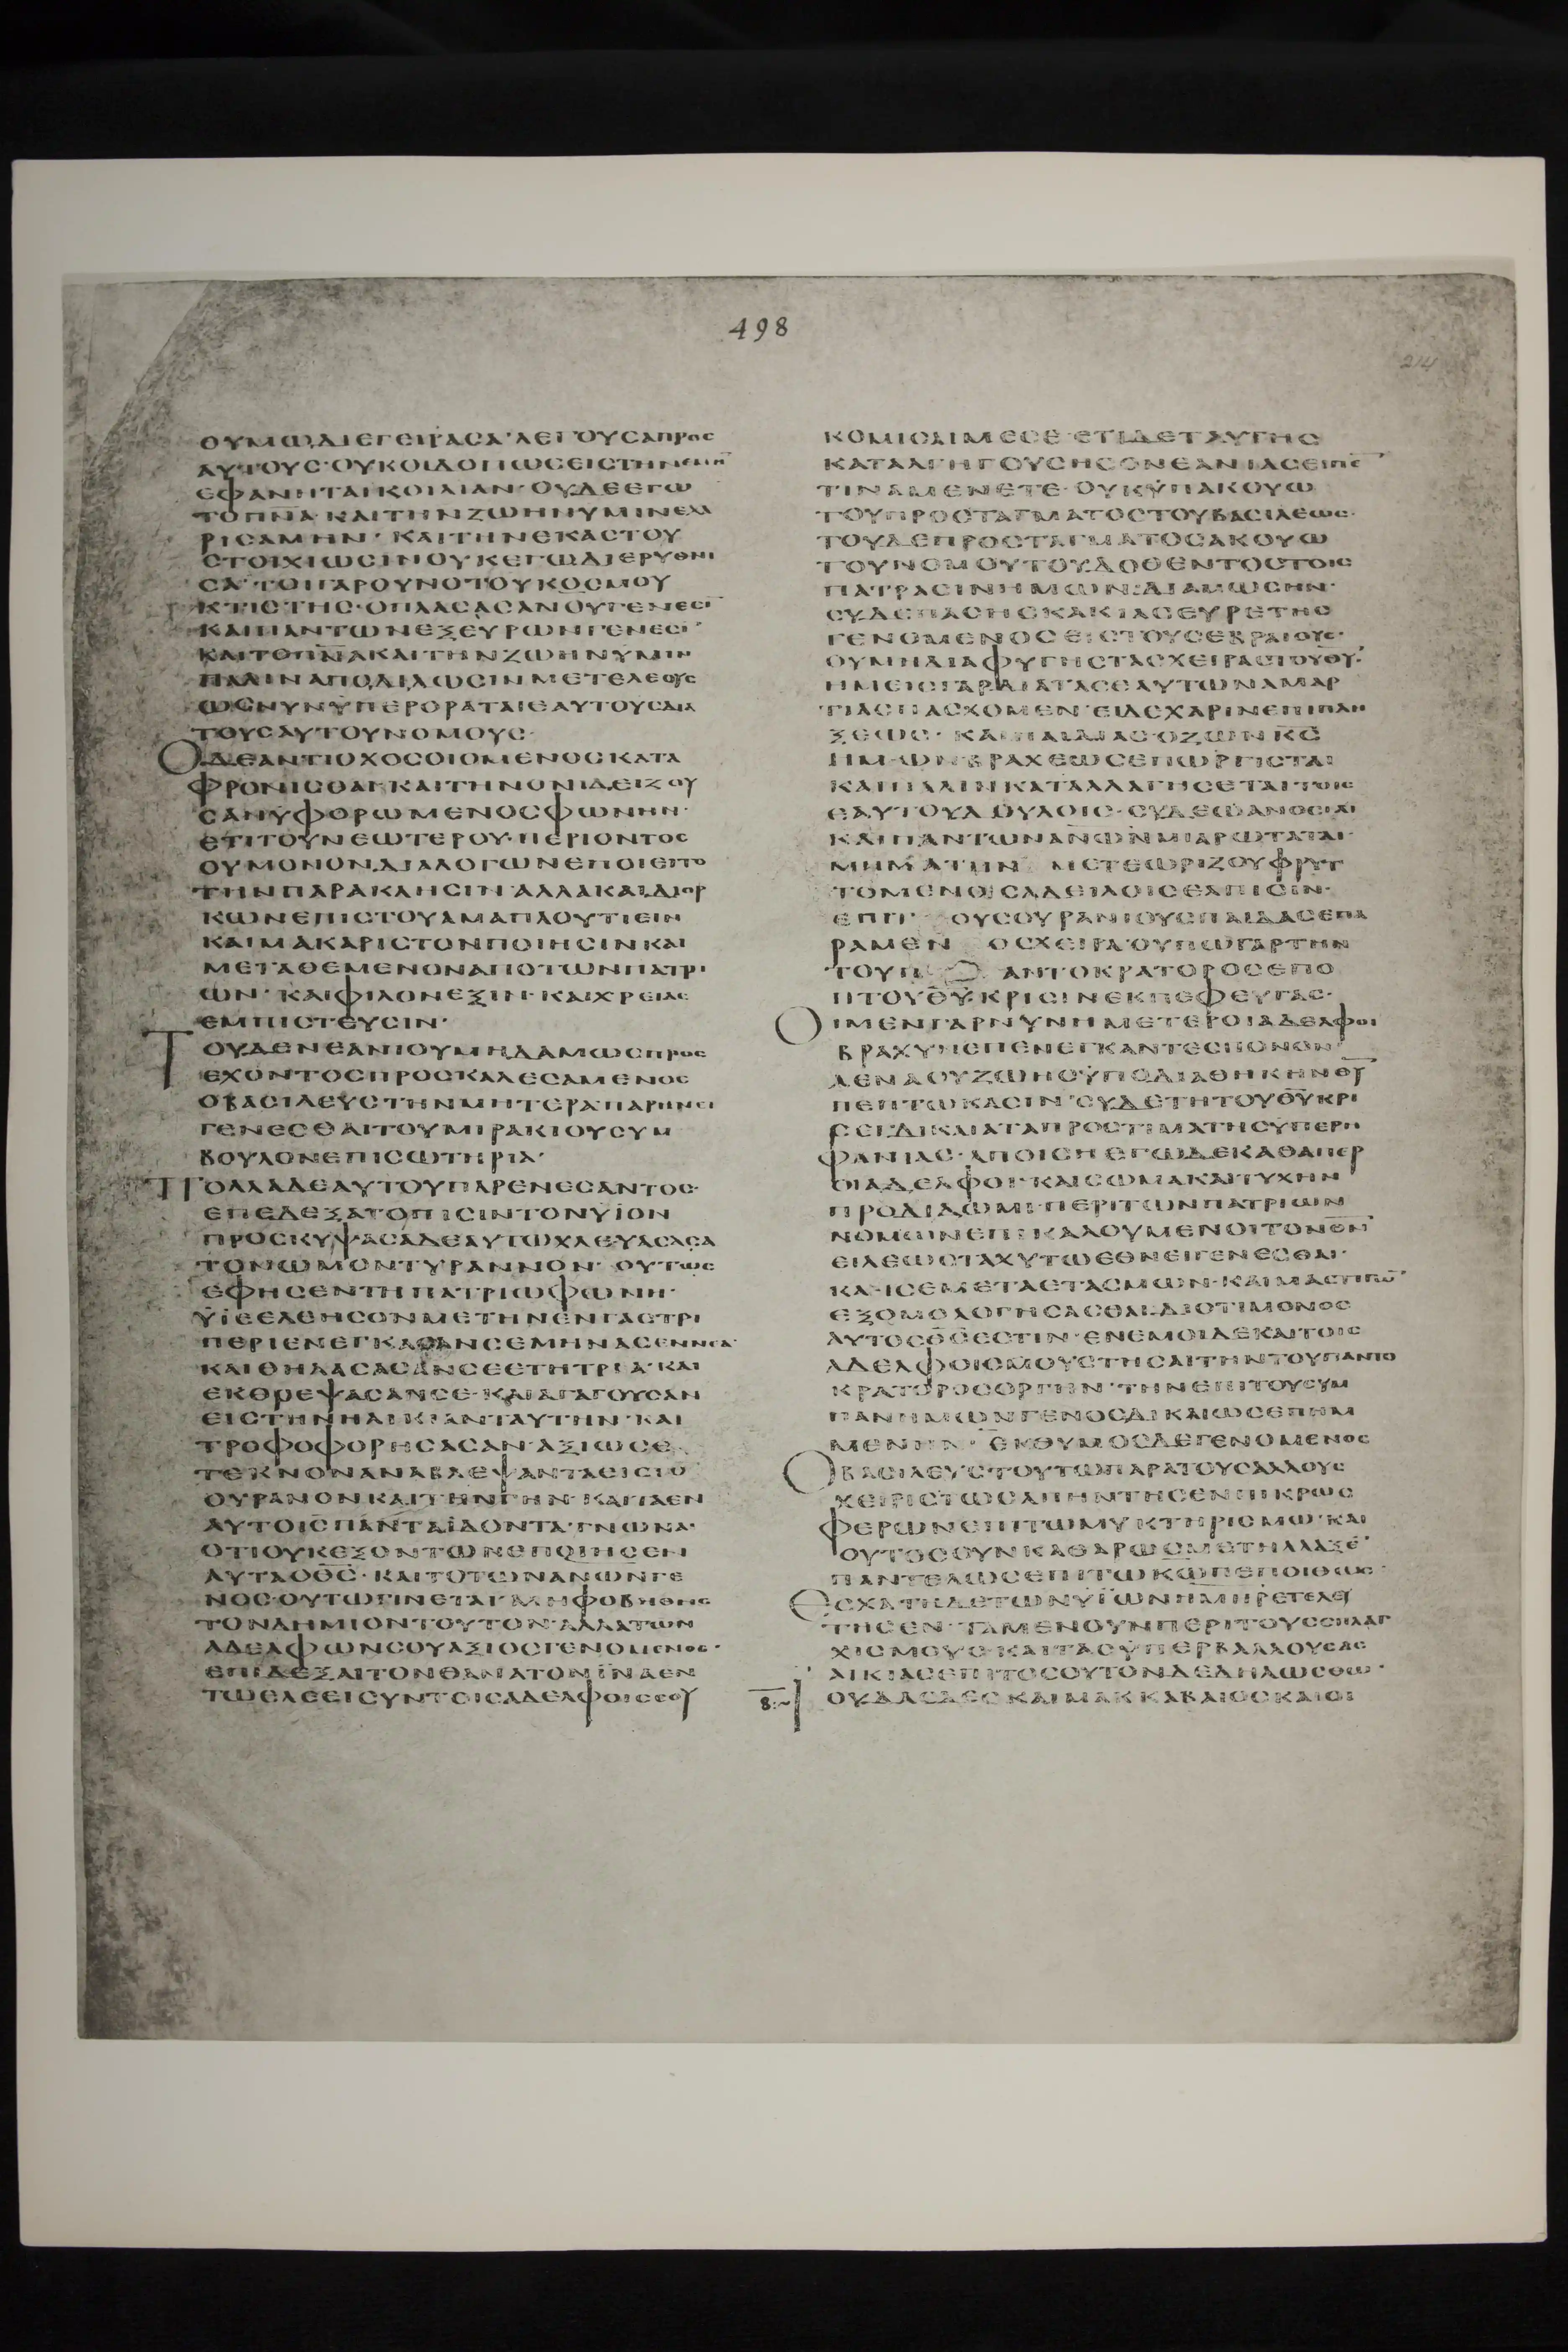 498
214
ΑΥΤΟΥΣ·ΟΥΚΟΙΔΟΠΩΣΕΙΣΤΗΝΕΜΗ
ΕΦΑΝΗΤΑΙΚΟΙΛΙΑΝ·ΟΥΔΕΕΓΩ
ΤΟΠΝΑ·ΚΑΙΤΗΝΖΩΗΝΥΜΙΝΕΧΑ
ΡΙΣΑΜΗΝ·ΚΑΙΤΗΝΕΚΑΣΤΟΥ
ΣΤΟΙΧΙΩΣΙΝΟΥΚΕΓΩΔΙΕΡΥΘΜΙ
ΣΑ·ΤΟΙΓΑΡΟΥΝΟΤΟΥΚΟΣΜΟΥ
ΚΤΙΣΤΗΣ·ΟΠΛΑΣΑΣΑΝΟΥΓΕΝΕΣΙ
ΚΑΙΠΑΝΤΩΝΕΞΕΥΡΩΝΓΕΝΕΣΙ
ΚΑΙΤΟΠΝΑΚΑΙΤΗΝΖΩΗΝΥΜΙΝ
ΠΑΛΙΝΑΠΟΔΙΔΩΣΙΝΜΕΤΕΛΕΟΥΣ
ΩΣΝΥΝΥΠΕΡΟΡΑΤΑΙΕΑΥΤΟΥΣΔΙΑ
ΤΟΥΣΑΥΤΟΥΝΟΜΟΥΣ·
ΟΔΕΑΝΤΙΟΧΟΣΟΙΟΜΕΝΟΣΚΑΤΑ
ΦΡΟΝΙΣΘΑΙ·ΚΑΙΤΗΝΟΝΙΔΕΙΖΟΥ
ΣΑΝΥΦΟΡΩΜΕΝΟΣΦΩΝΗΝ·
ΕΤΙΤΟΥΝΕΩΤΕΡΟΥ·ΠΕΡΙΟΝΤΟΣ
ΟΥΜΟΝΟΝΔΙΑΛΟΓΩΝΕΠΟΙΕΙΤΟ
ΤΗΝΠΑΡΑΚΛΗΣΙΝ·ΑΛΛΑΚΑΙΔΙΟΡ
ΚΩΝΕΠΙΣΤΟΥΑΜΑΠΛΟΥΤΙΕΙΝ
ΚΑΙΜΑΚΑΡΙΣΤΟΝΠΟΙΗΣΙΝΚΑΙ
ΜΕΤΑΘΕΜΕΝΟΝΑΠΟΤΩΝΠΑΤΡΙ
ΩΝ·ΚΑΙΦΙΛΟΝΕΞΙΝ·ΚΑΙΧΡΕΙΑΣ
ΕΜΠΙΣΤΕΥΣΙΝ·
ΤΟΥΔΕΝΕΑΝΙΟΥΜΗΔΑΜΩΣΠΡΟΣ
ΕΧΟΝΤΟΣΠΡΟΣΚΑΛΕΣΑΜΕΝΟΣ
ΟΒΑΣΙΛΕΥΣΤΗΝΜΗΤΕΡΑΠΑΡΗΝΕΙ
ΓΕΝΕΣΘΑΙΤΟΥΜΙΡΑΚΙΟΥΣΥΜ
ΒΟΥΛΟΝΕΠΙΣΩΤΗΡΙΑ·
ΠΟΛΛΑΔΕΑΥΤΟΥΠΑΡΕΝΕΣΑΝΤΟΣ·
ΕΠΕΔΕΞΑΤΟΠΙΣΙΝΤΟΝΥΪΟΝ
ΠΡΟΣΚΥΨΑΣΑΔΕΑΥΤΩΧΛΕΥΑΣΑΣΑ
ΤΟΝΩΜΟΝΤΥΡΑΝΝΟΝ·ΟΥΤΩΣ
ΕΦΗΣΕΝΤΗΠΑΤΡΙΩΦΩΝΗ·
ΥΪΕΕΛΕΗΣΟΝΜΕΤΗΝΕΝΓΑΣΤΡΙ
ΚΑΙΘΗΛΑΣΑΣΑΝΣΕΕΤΗΤΡΙΑ·ΚΑΙ
ΕΚΘΡΕΨΑΣΑΝΣΕ·ΚΑΙΑΓΑΓΟΥΣΑΝ
ΕΙΣΤΗΝΗΛΙΚΙΑΝΤΑΥΤΗΝ·ΚΑΙ
ΤΡΟΦΟΦΟΡΗΣΑΣΑΝ·ΑΞΙΩΣΕ
ΤΕΚΝΟΝΑΝΑΒΛΕΨΑΝΤΑΕΙΣΤΟ
ΟΥΡΑΝΟΝΚΑΙΤΗΝΓΗΝ·ΚΑΙΤΑΕΝ
ΑΥΤΟΙΣΠΑΝΤΑΪΔΟΝΤΑ·ΓΝΩΝΑΙ
ΟΤΙΟΥΚΕΞΟΝΤΩΝΕΠΟΙΗΣΕΝ
ΑΥΤΑΟΘΣ·ΚΑΙΤΟΤΩΝΑΝΩΝΓΕ
ΝΟΣ·ΟΥΤΩΓΙΝΕΤΑΙ·ΜΗΦΟΒΗΘΗΣ
ΤΟΝΔΗΜΙΟΝΤΟΥΤΟΝ·ΑΛΛΑΤΩΝ
ΑΔΕΛΦΩΝΣΟΥΑΞΙΟΣΓΕΝΟΜΕΝΟΣ·
ΕΠΙΔΕΞΑΙΤΟΝΘΑΝΑΤΟΝΪΝΑΕΝ
ΤΩΕΛΕΕΙΣΥΝΤΟΙΣΑΔΕΛΦΟΙΣΣΟΥ
ΚΟΜΙΣΑΙΜΕΣΕ·ΕΤΙΔΕΤΑΥΤΗΣ
ΚΑΤΑΛΗΓΟΥΣΗΣΟΝΕΑΝΙΑΣΕΙΠΕ
ΤΙΝΑΜΕΝΕΤΕ·ΟΥΚΥΠΑΚΟΥΩ
ΤΟΥΠΡΟΣΤΑΓΜΑΤΟΣΤΟΥΒΑΣΙΛΕΩΣ·
ΤΟΥΔΕΠΡΟΣΤΑΓΜΑΤΟΣΑΚΟΥΩ
ΤΟΥΝΟΜΟΥΤΟΥΔΟΘΕΝΤΟΣΤΟΙΣ
ΠΑΤΡΑΣΙΝΗΜΩΝ·ΔΙΑΜΩΣΗΝ·
ΣΥΔΕΠΑΣΗΣΚΑΚΙΑΣΕΥΡΕΤΗΣ
ΓΕΝΟΜΕΝΟΣΕΙΣΤΟΥΣΕΒΡΑΙΟΥΣ·
ΟΥΜΗΔΙΑΦΥΓΗΣΤΑΣΧΕΙΡΑΣΤΟΥΘΥ·
ΗΜΕΙΣΓΑΡΔΙΑΤΑΣΕΑΥΤΩΝΑΜΑΡ
ΤΙΑΣΠΑΣΧΟΜΕΝ·ΕΙΔΕΧΑΡΙΝΕΠΙΠΛΗ
ΞΕΩΣ·ΚΑΙΠΑΙΔΙΑΣ·ΟΖΩΝΚΣ
ΗΜΩΝΒΡΑΧΕΩΣΕΠΩΡΓΙΣΤΑΙ
ΚΑΙΠΑΛΙΝΚΑΤΑΛΛΑΓΗΣΕΤΑΙΤΟΙΣ
ΕΑΥΤΟΥΔΟΥΛΟΙΣ·ΣΥΔΕΩΑΝΟΣΙΑΙ
ΚΑΙΠΑΝΤΩΝΑΝΩΝΜΙΑΡΩΤΑΤΑΙ·
ΜΗΜΑΤΗΝ ΜΕΤΕΩΡΙΖΟΥΦΡΥΤ
ΤΟΜΕΝΟΣΑΔΕΙΛΟΙΣΕΛΠΙΣΙΝ·
ΡΑΜΕΝ ΟΣΧΕΙΡΑ·ΟΥΠΩΓΑΡΤΗΝ
ΤΟΥΠ ΑΝΤΟΚΡΑΤΟΡΟΣΕΠΟ
ΠΤΟΥΘΥΚΡΙΣΙΝΕΚΠΕΦΕΥΓΑΣ·
ΟΙΜΕΝΓΑΡΝΥΝΗΜΕΤΕΡΟΙΑΔΕΛΦΟΙ
ΒΡΑΧΥΝΕΠΕΝΕΓΚΑΝΤΕΣΠΟΝΟΝ
ΑΕΝΑΟΥΖΩΗΣΥΠΟΔΙΑΘΗΚΗΝΘΥ
ΠΕΠΤΩΚΑΣΙΝ·ΣΥΔΕΤΗΤΟΥΘΥΚΡΙ
ΣΕΙΔΙΚΑΙΑΤΑΠΡΟΣΤΙΜΑΤΗΣΥΠΕΡΗ
ΦΑΝΙΑΣ·ΑΠΟΙΣΗ·ΕΓΩΔΕΚΑΘΑΠΕΡ
ΟΙΑΔΕΛΦΟΙ·ΚΑΙΣΩΜΑΚΑΙΤΥΧΗΝ
ΠΡΟΔΙΔΩΜΙ·ΠΕΡΙΤΩΝΠΑΤΡΙΩΝ
ΝΟΜΩΝΕΠΙΚΑΛΟΥΜΕΝΟΙΤΟΝΘΝ
ΕΙΛΕΩΣΤΑΧΥΤΩΕΘΝΕΙΓΕΝΕΣΘΑΙ·
ΚΑΙΣΕΜΕΤΑΕΤΑΣΜΩΝ·ΚΑΙΜΑΣΤΙΓΩ
ΕΞΟΜΟΛΟΓΗΣΑΣΘΑΙ·ΔΙΟΤΙΜΟΝΟΣ
ΑΥΤΟΣΘΣΕΣΤΙΝ·ΕΝΕΜΟΙΔΕΚΑΙΤΟΙΣ
ΑΔΕΛΦΟΙΣΜΟΥΣΤΗΣΑΙΤΗΝΤΟΥΠΑΝΤΟ
ΚΡΑΤΟΡΟΣΟΡΓΗΝ·ΤΗΝΕΠΙΤΟΥΣΥΜ
ΠΑΝΗΜΩΝΓΕΝΟΣΔΙΚΑΙΩΣΕΠΗΜ
ΜΕΝΗΝ·ΕΚΘΥΜΟΣΔΕΓΕΝΟΜΕΝΟΣ
ΟΒΑΣΙΛΕΥΣΤΟΥΤΩΠΑΡΑΤΟΥΣΑΛΛΟΥΣ
ΧΕΙΡΙΣΤΩΣΑΠΗΝΤΗΣΕΝΠΙΚΡΩΣ
ΦΕΡΩΝΕΠΙΤΩΜΥΚΤΗΡΙΣΜΩ·ΚΑΙ
ΟΥΤΟΣΟΥΝΚΑΘΑΡΩΣΜΕΤΗΛΛΑΞΕ
ΠΑΝΤΕΛΩΣΕΠΙΤΩΚΩΠΕΠΟΙΘΩΣ·
ΕΣΧΑΤΗΔΕΤΩΝΥΪΩΝΗΜΗΡΕΤΕΛΕΥ
ΤΗΣΕΝ·ΤΑΜΕΝΟΥΝΠΕΡΙΤΟΥΣΣΠΛΑΓ
ΧΙΣΜΟΥΣ·ΚΑΙΤΑΣΥΠΕΡΒΑΛΛΟΥΣΑΣ
ΑΙΚΙΑΣΕΠΙΤΟΣΟΥΤΟΝΔΕΔΗΛΩΣΘΩ·
ΟΥΔΑΣΔΕΟΚΑΙΜΑΚΚΑΒΑΙΟΣΚΑΙΟΙ